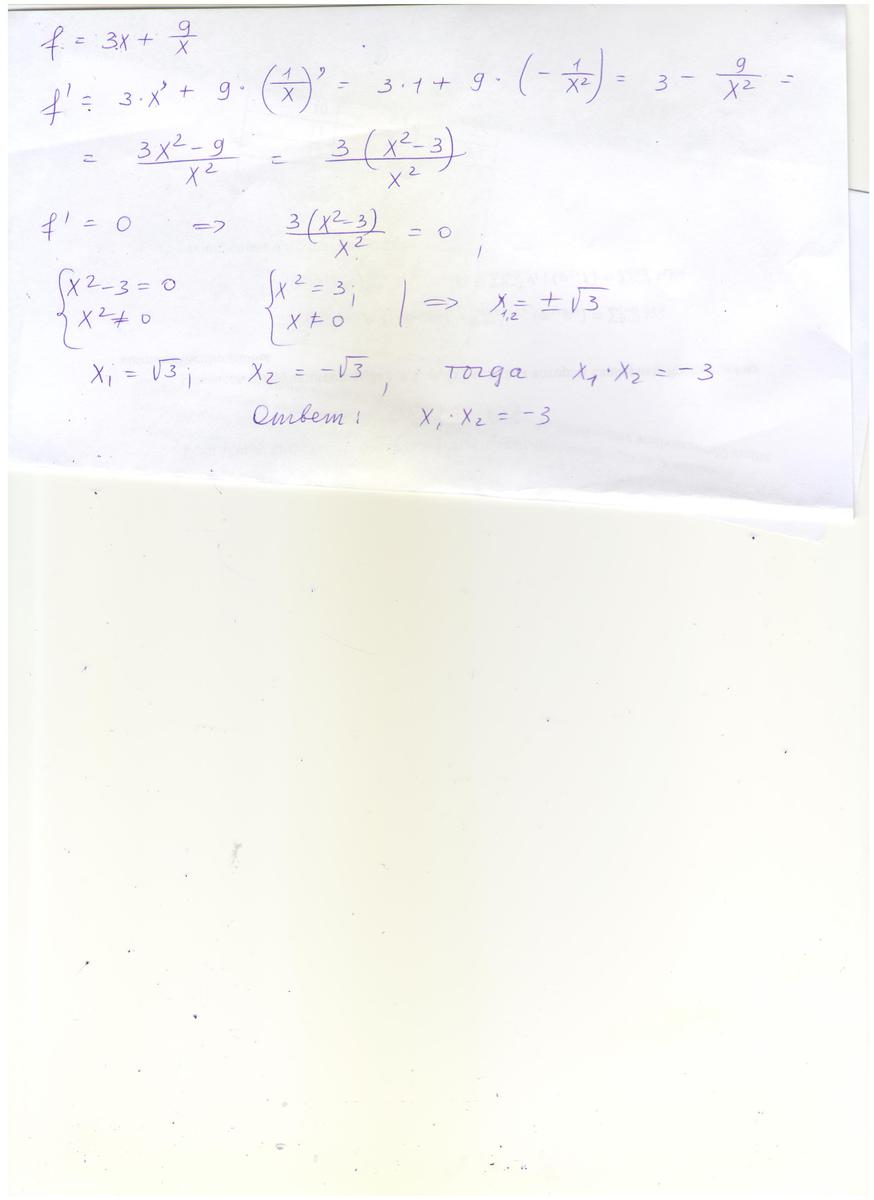 f = 3x + 9/x
f' = 3·x' + 9·(1/x)' = 3·1 + 9·(-1/x²) = 3 - 9/x² =
= (3x² - 9)/x² = 3(x² - 3)/x²
f' = 0 => 3(x² - 3)/x² = 0;
{x² - 3 = 0 {x² = 3; | => x₁,₂ = ±√3
{x² ≠ 0 {x ≠ 0
x₁ = √3; x₂ = -√3, тогда x₁·x₂ = -3
Ответ: x₁·x₂ = -3